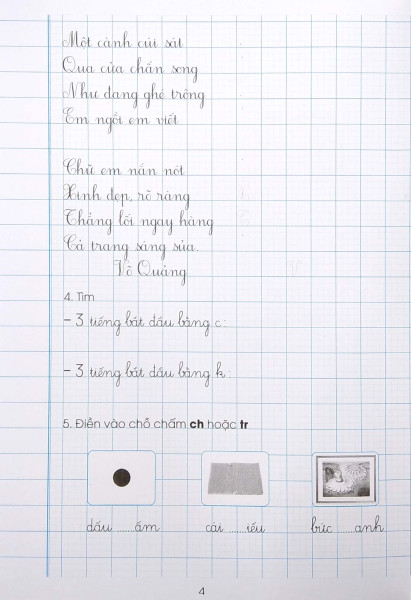 Một cành cúi sát
Qua cửa chấn song
Như đang ghé trông
Em ngồi em viết
Chữ em nắn nót
Xinh đẹp, rõ ràng
Thẳng lối ngay hàng
Cả trang sáng sủa.
Võ Quảng
4. Tìm
– 3 tiếng bắt đầu bằng c:
– 3 tiếng bắt đầu bằng k:
5. Điền vào chỗ chấm ch hoặc tr
dấu .....ấm cái .....iếu bức .....anh
4